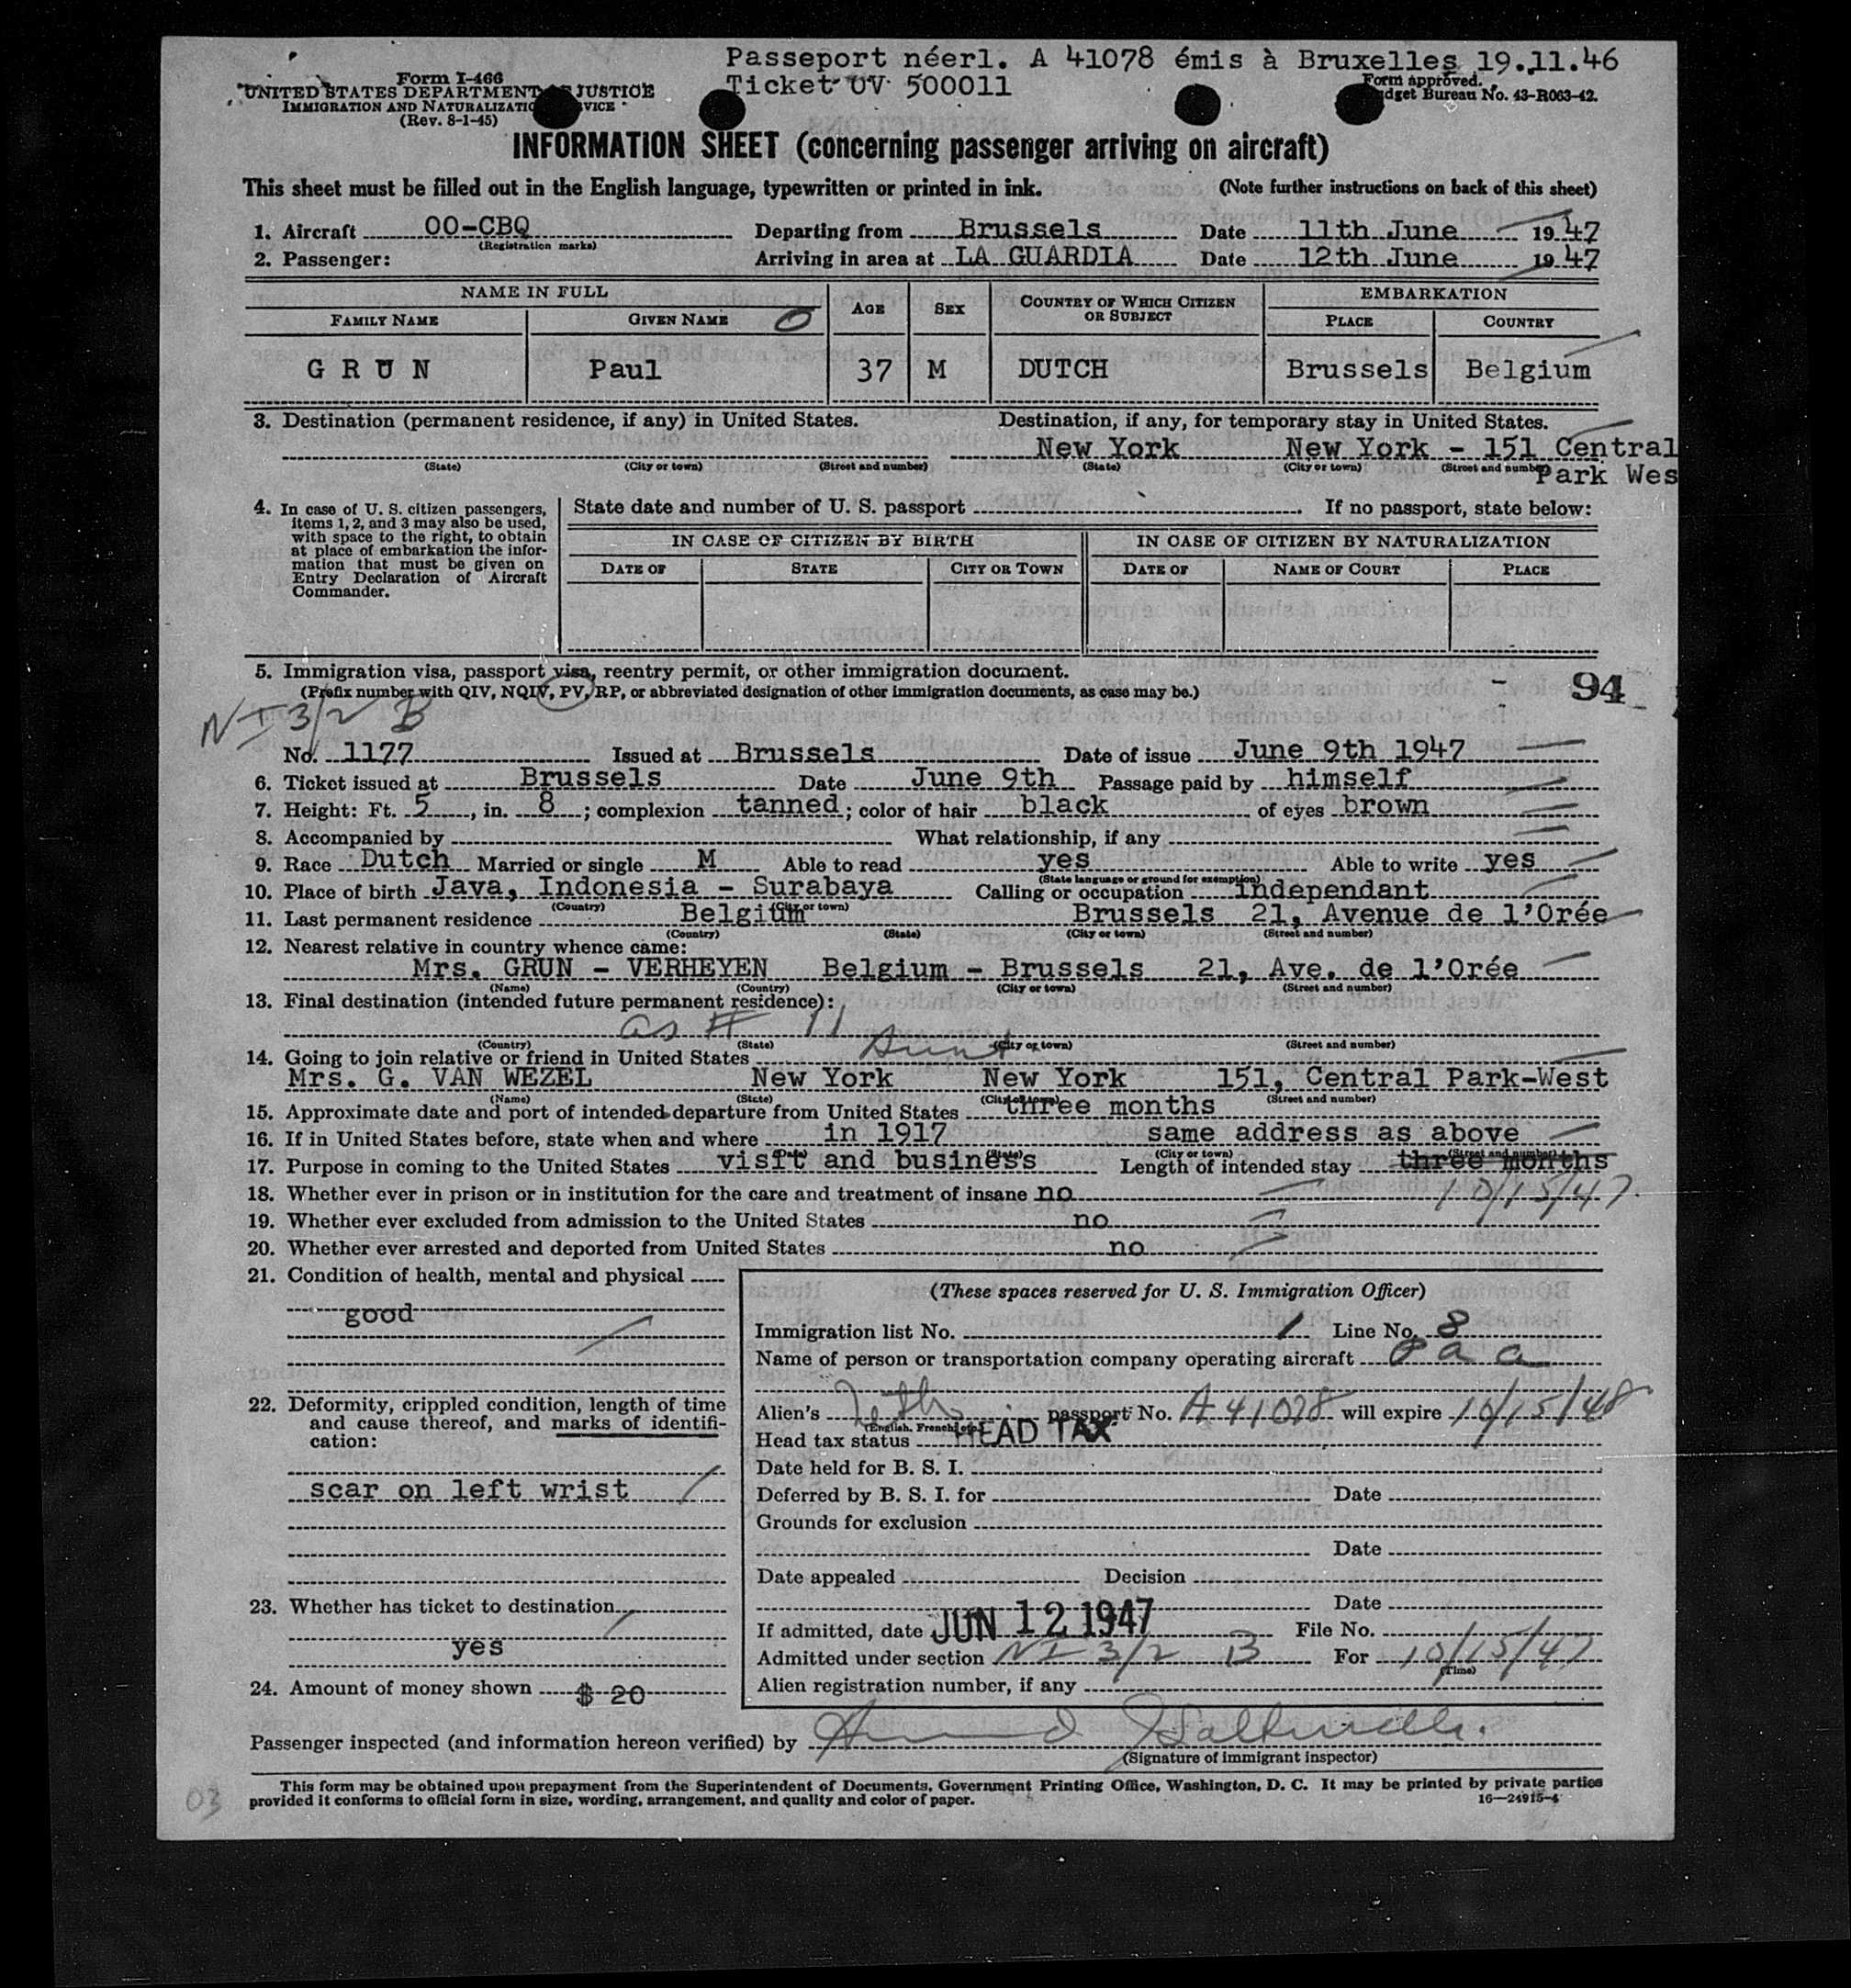 Passeport néerl. A 41078 émis à Bruxelles 19.11.46
Ticket UV 500011
Form I-466
UNITED STATES DEPARTMENT JUSTICE
IMMIGRATION AND NATURALIZATION
(Rev. 8-1-45)
Form approved.
Budget Bureau No. 43-R063-42.
INFORMATION SHEET (concerning passenger arriving on aircraft)
This sheet must be filled out in the English language, typewritten or printed in ink. (Note further instructions on back of this sheet)
1. Aircraft OO-CBQ Departing from Brussels Date 11th June 1947
(Registration marks)
2. Passenger: Arriving in area at LA GUARDIA Date 12th June 1947
NAME IN FULL AGE SEX COUNTRY OF WHICH CITIZEN OR SUBJECT EMBARKATION
FAMILY NAME GIVEN NAME PLACE COUNTRY
GRUN Paul 37 M DUTCH Brussels Belgium
3. Destination (permanent residence, if any) in United States. Destination, if any, for temporary stay in United States.
New York New York - 151 Central
(State) (City or town) (Street and number) (State) (City or town) (Street and number)
Park Wes
4. In case of U. S. citizen passengers, items 1, 2, and 3 may also be used, with space to the right, to obtain at place of embarkation the information that must be given on Entry Declaration of Aircraft Commander.
State date and number of U. S. passport If no passport, state below:
IN CASE OF CITIZEN BY BIRTH IN CASE OF CITIZEN BY NATURALIZATION
DATE OF STATE CITY OR TOWN DATE OF NAME OF COURT PLACE
5. Immigration visa, passport visa, reentry permit, or other immigration document.
(Prefix number with QIV, NQIV, PV, RP, or abbreviated designation of other immigration documents, as case may be.)
94
NI 3/2 B
No. 1177 Issued at Brussels Date of issue June 9th 1947
6. Ticket issued at Brussels Date June 9th Passage paid by himself
7. Height: Ft. 5, in. 8; complexion tanned; color of hair black of eyes brown
8. Accompanied by What relationship, if any
9. Race Dutch Married or single M Able to read yes Able to write yes
(State language or ground for exemption)
10. Place of birth Java, Indonesia - Surabaya Calling or occupation independant
(Country) (City or town)
11. Last permanent residence Belgium Brussels 21, Avenue de l'Orée
(Country) (State) (City or town) (Street and number)
12. Nearest relative in country whence came:
Mrs. GRUN - VERHEYEN Belgium - Brussels 21, Ave. de l'Orée
(Name) (Country) (City or town) (Street and number)
13. Final destination (intended future permanent residence):
as # 11
(Country) (State) (City or town) (Street and number)
14. Going to join relative or friend in United States Aunt
Mrs. G. VAN WEZEL New York New York 151, Central Park-West
(Name) (State) (City or town) (Street and number)
15. Approximate date and port of intended departure from United States three months
16. If in United States before, state when and where in 1917 same address as above
(Date) (State) (City or town) (Street and number)
17. Purpose in coming to the United States visit and business Length of intended stay three months
10/15/47.
18. Whether ever in prison or in institution for the care and treatment of insane no
19. Whether ever excluded from admission to the United States no
20. Whether ever arrested and deported from United States no
21. Condition of health, mental and physical
good
22. Deformity, crippled condition, length of time and cause thereof, and marks of identification:
scar on left wrist
23. Whether has ticket to destination
yes
24. Amount of money shown $ 20
(These spaces reserved for U. S. Immigration Officer)
Immigration list No. 1 Line No. 8
Name of person or transportation company operating aircraft P a a
Alien's Neth passport No. A 41078 will expire 10/15/48
(English, French, etc.)
Head tax status HEAD TAX
Date held for B. S. I.
Deferred by B. S. I. for Date
Grounds for exclusion
Date
Date appealed Decision
Date
If admitted, date JUN 12 1947 File No.
Admitted under section NI 3/2 B For 10/15/47
(Time)
Alien registration number, if any
Passenger inspected (and information hereon verified) by
(Signature of immigrant inspector)
This form may be obtained upon prepayment from the Superintendent of Documents, Government Printing Office, Washington, D. C. It may be printed by private parties
provided it conforms to official form in size, wording, arrangement, and quality and color of paper.
16—24915-4
03